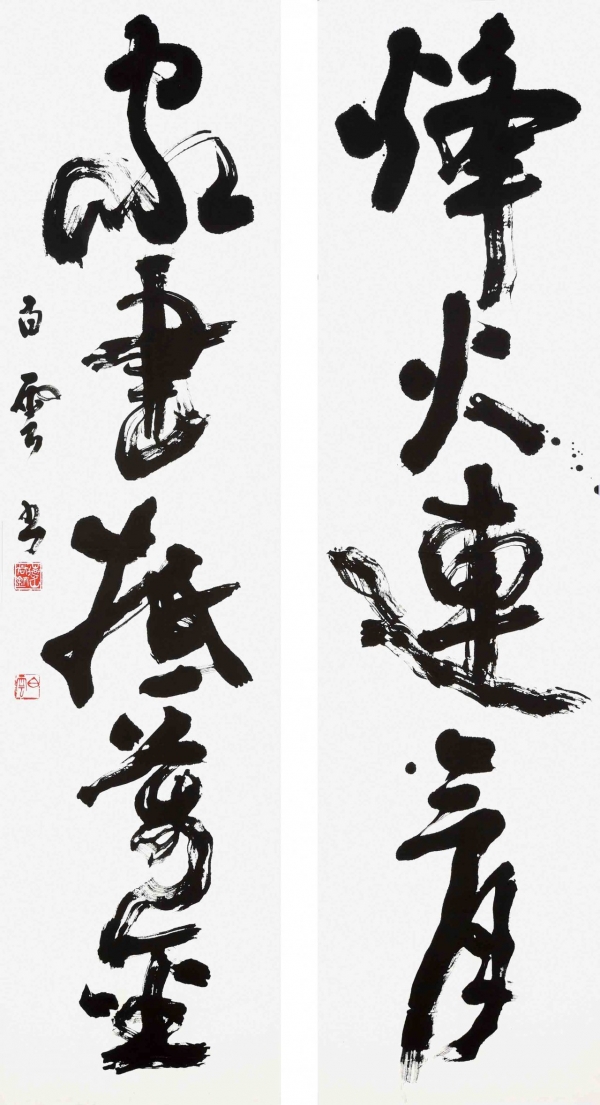 烽火連三月
家書抵萬金
白雲書
白雲